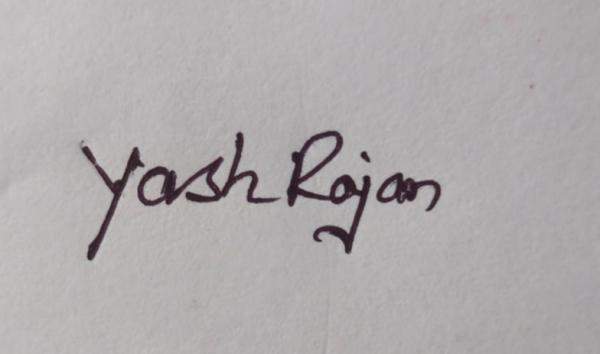 Yash Rajan